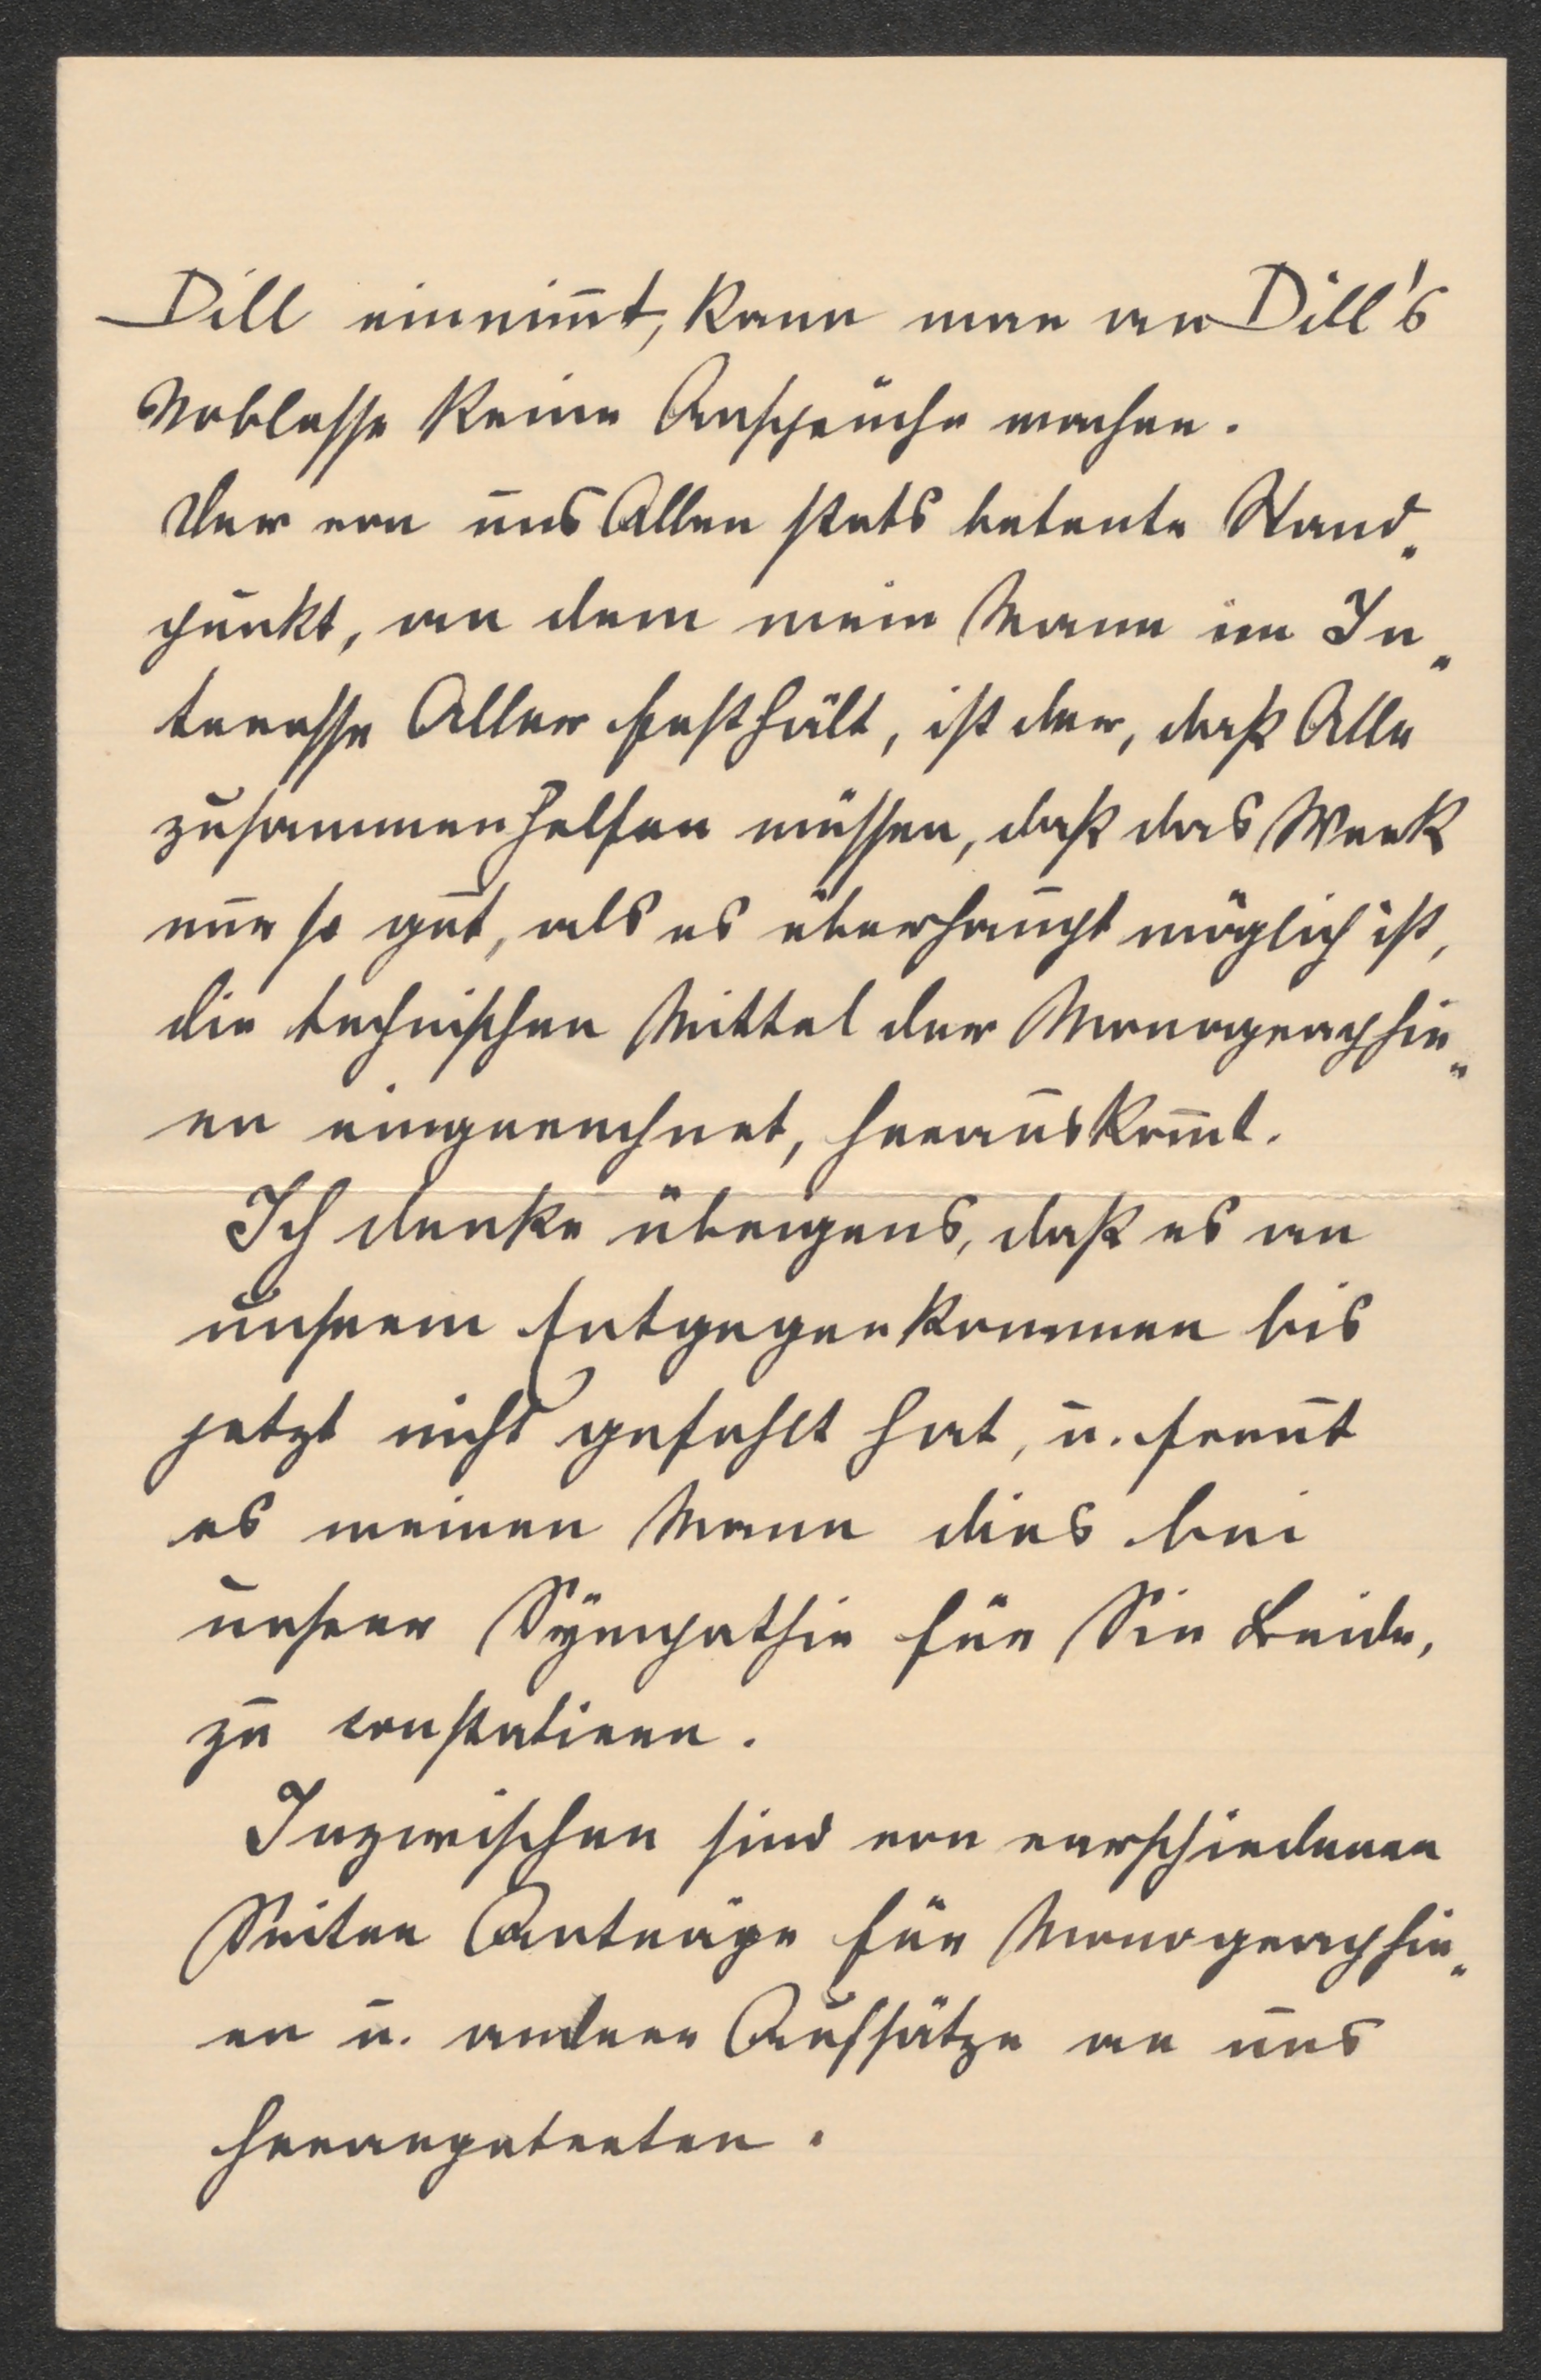 Dill einnim̅t, kann man an Dill's
Noblesse keine Ansprüche machen.
Der von uns Allen stets betonte Stand„
punkt, an dem mein Mann im In„
teresse Aller festhält, ist der, daß Alle
zusammenhelfen müssen, daß das Werk
nur so gut, als es überhaupt möglich ist,
die technischen Mittel der Monographie„
en eingerechnet, herauskom̅t.
Ich denke übrigens, daß es an
unserem Entgegenkommen bis
jetzt nicht gefehlt hat, u. freut
es meinen Mann dies bei
unserer Sympathie für Sie Beide,
zu constatieren.
Inzwischen sind von verschiedenen
Seiten Anträge für Monographie„
en u. andere Aufsätze an uns
herangetreten.